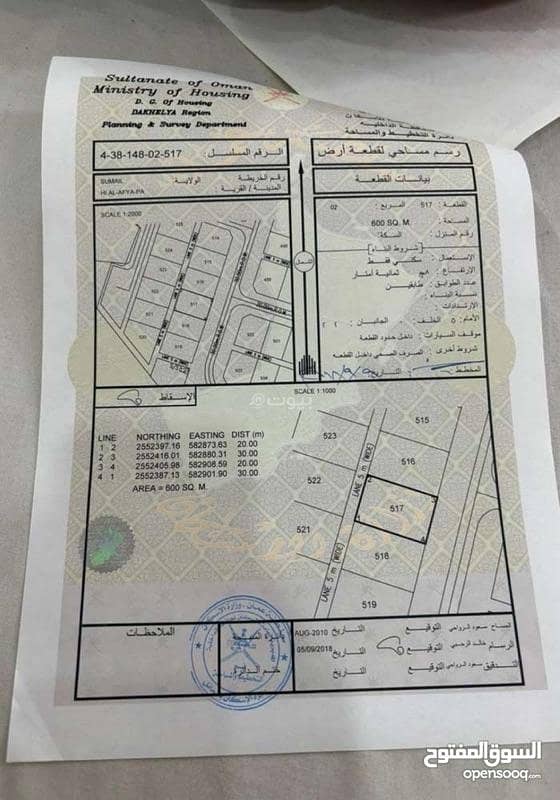 Sultanate of Oman
Ministry of Housing
D. G. Of Housing
DAKHELYA Region
Planning & Survey Department
دائرة التخطيط والمساحة
4-38-148-02-517
الرقم المسلسل :
رسم مساحي لقطعة أرض
SUMAIL
الولاية:
رقم الخريطة
HI AL-AFYA-PA
المدينة / القرية :
بيانات القطعة
SCALE 1:2000
القطعة : 517 المربع : 02
المساحة : 600 SQ. M.
رقم المنزل : السكة:
شروط البناء
الإستعمال : سكني فقط
الإرتفاع : ٨م ثمانية أمتار
عدد الطوابق : طابقين
نسبة البناء :
الإرتدادات :
الأمام: ٥ الخلف: ٢ الجانبان: ٢
موقف السيارات : داخل حدود القطعة
شروط أخرى : الصرف الصحي داخل القطعة
المخطط : التاريخ
الشمال
الإسقاط :
SCALE 1:1000
LINE NORTHING EASTING DIST (m)
1 2 2552397.16 582873.63 20.00
2 3 2552416.01 582880.31 30.00
3 4 2552405.98 582908.59 20.00
4 1 2552387.13 582901.90 30.00
AREA = 600 SQ. M.
515
523
516
522
517
521
518
519
LANE 5 m (WIDE)
LANE 5 m (WIDE)
الملاحظات
ختم الدائرة
AUG-2010 التاريخ
التوقيع
المساح سعود الرواحي
05/09/2018 التاريخ
التوقيع
الرسام خالد الرحبي
التاريخ
التوقيع
التدقيق سعود الرواحي
بيوت
السوق المفتوح
opensooq.com